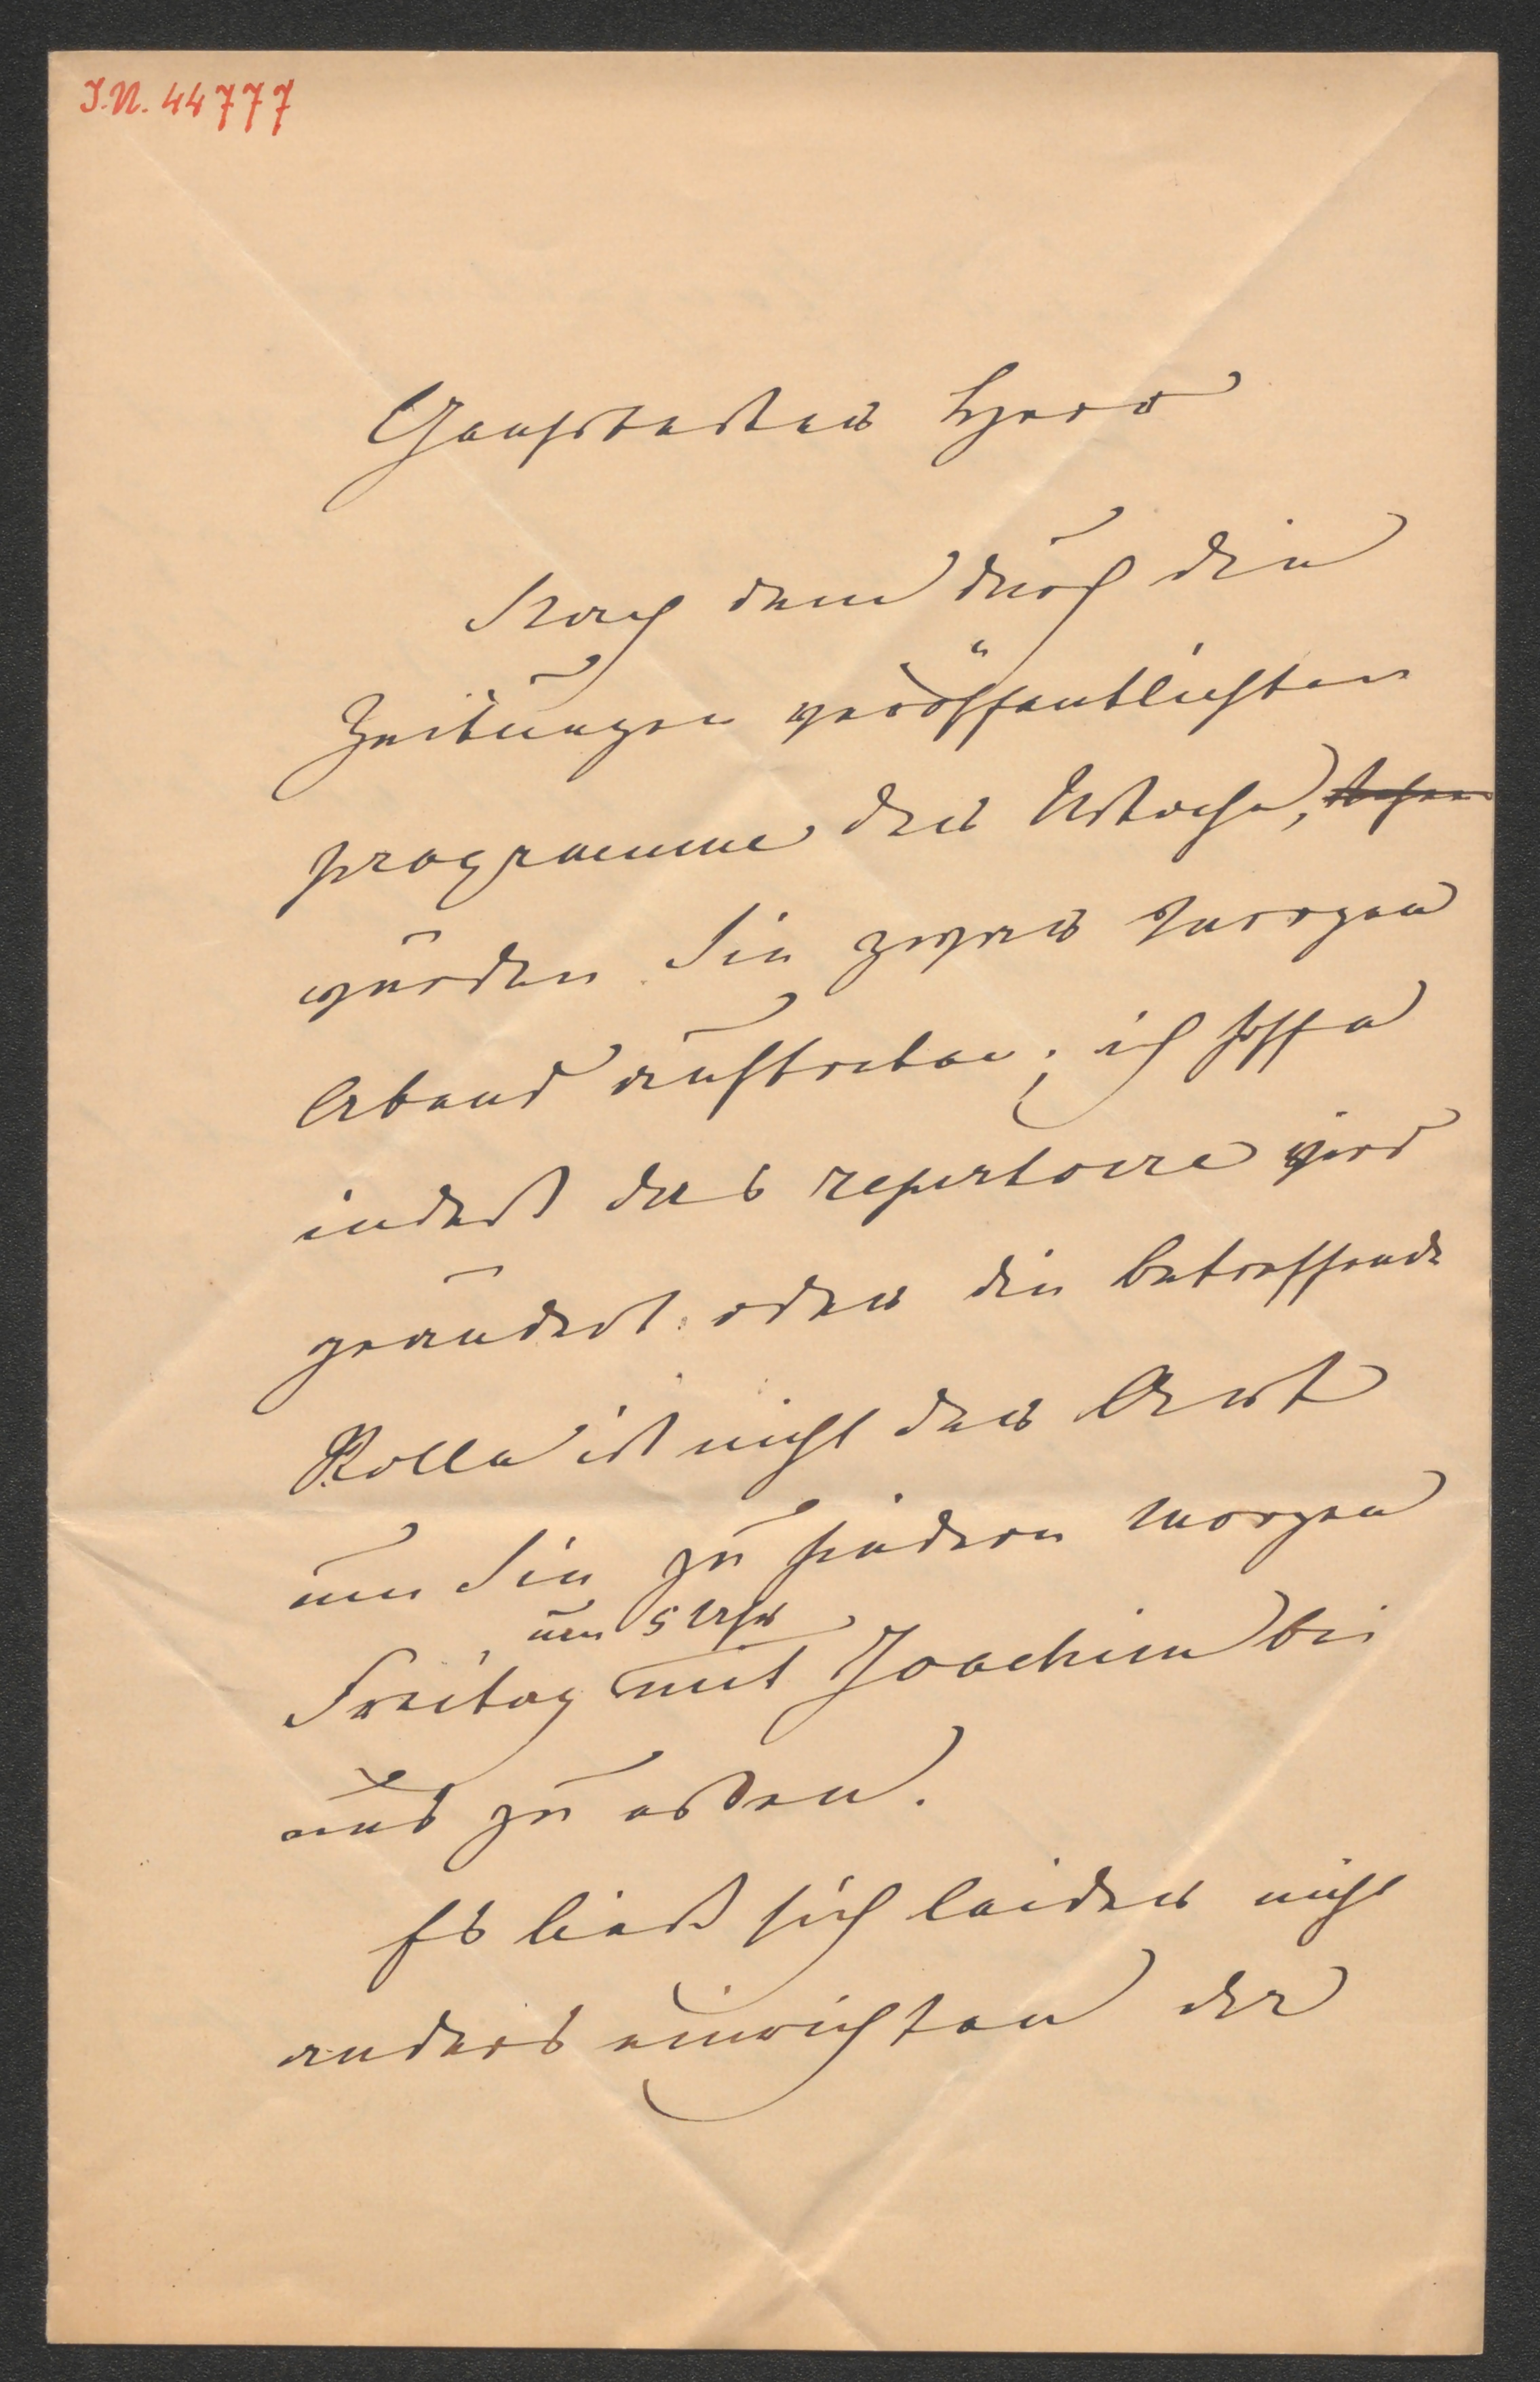 I.N. 44777
Geehrtester Herr
Nach dem durch die
Zeitungen veröffentlichten
programme der Woche,
würden Sie zwar morgen
Abend auftreten; ich hoffe
indeß das repertoire wird
geändert oder die betreffende
Rolle ist nicht der Art
um Sie zu hindern morgen
um 5 Uhr
Freitag mit Joachim bei
uns zu essen.
Es ließ sich leider nicht
anders einrichten da